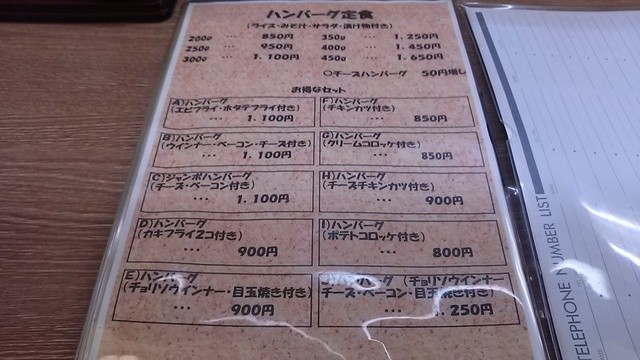 ハンバーグ定食
(ライス・みそ汁・サラダ・漬け物付き)
200g … 850円 350g … 1,250円
250g … 950円 400g … 1,450円
300g … 1,100円 450g … 1,650円
○チーズハンバーグ 50円増し
お得なセット
A)ハンバーグ
(エビフライ・ホタテフライ付き)
… 1,100円
F)ハンバーグ
(チキンカツ付き)
… 850円
B)ハンバーグ
(ウインナー・ベーコン・チーズ付き)
… 1,100円
G)ハンバーグ
(クリームコロッケ付き)
… 850円
C)ジャンボハンバーグ
(チーズ・ベーコン付き)
… 1,100円
H)ハンバーグ
(チーズチキンカツ付き)
… 900円
D)ハンバーグ
(カキフライ2コ付き)
… 900円
I)ハンバーグ
(ポテトコロッケ付き)
… 800円
E)ハンバーグ
(チョリソウインナー・目玉焼き付き)
… 900円
J)ハンバーグ (チョリソウインナー
チーズ・ベーコン・目玉焼き付き)
… 1,250円
TELEPHONE NUMBER LIST